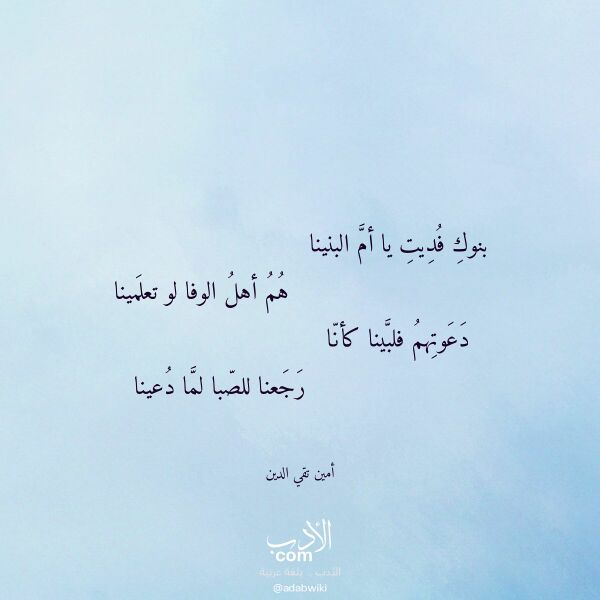 بنوكِ فُدِيتِ يا أمَّ البنينا
هُمُ أهلُ الوفا لو تعلَمينا
دَعَوتِهمُ فلبَّينا كأنّا
رَجَعنا للصّبا لمَّا دُعينا
أمين تقي الدين
الأدب
com
الأدب .. بلغة عربية
@adabwiki